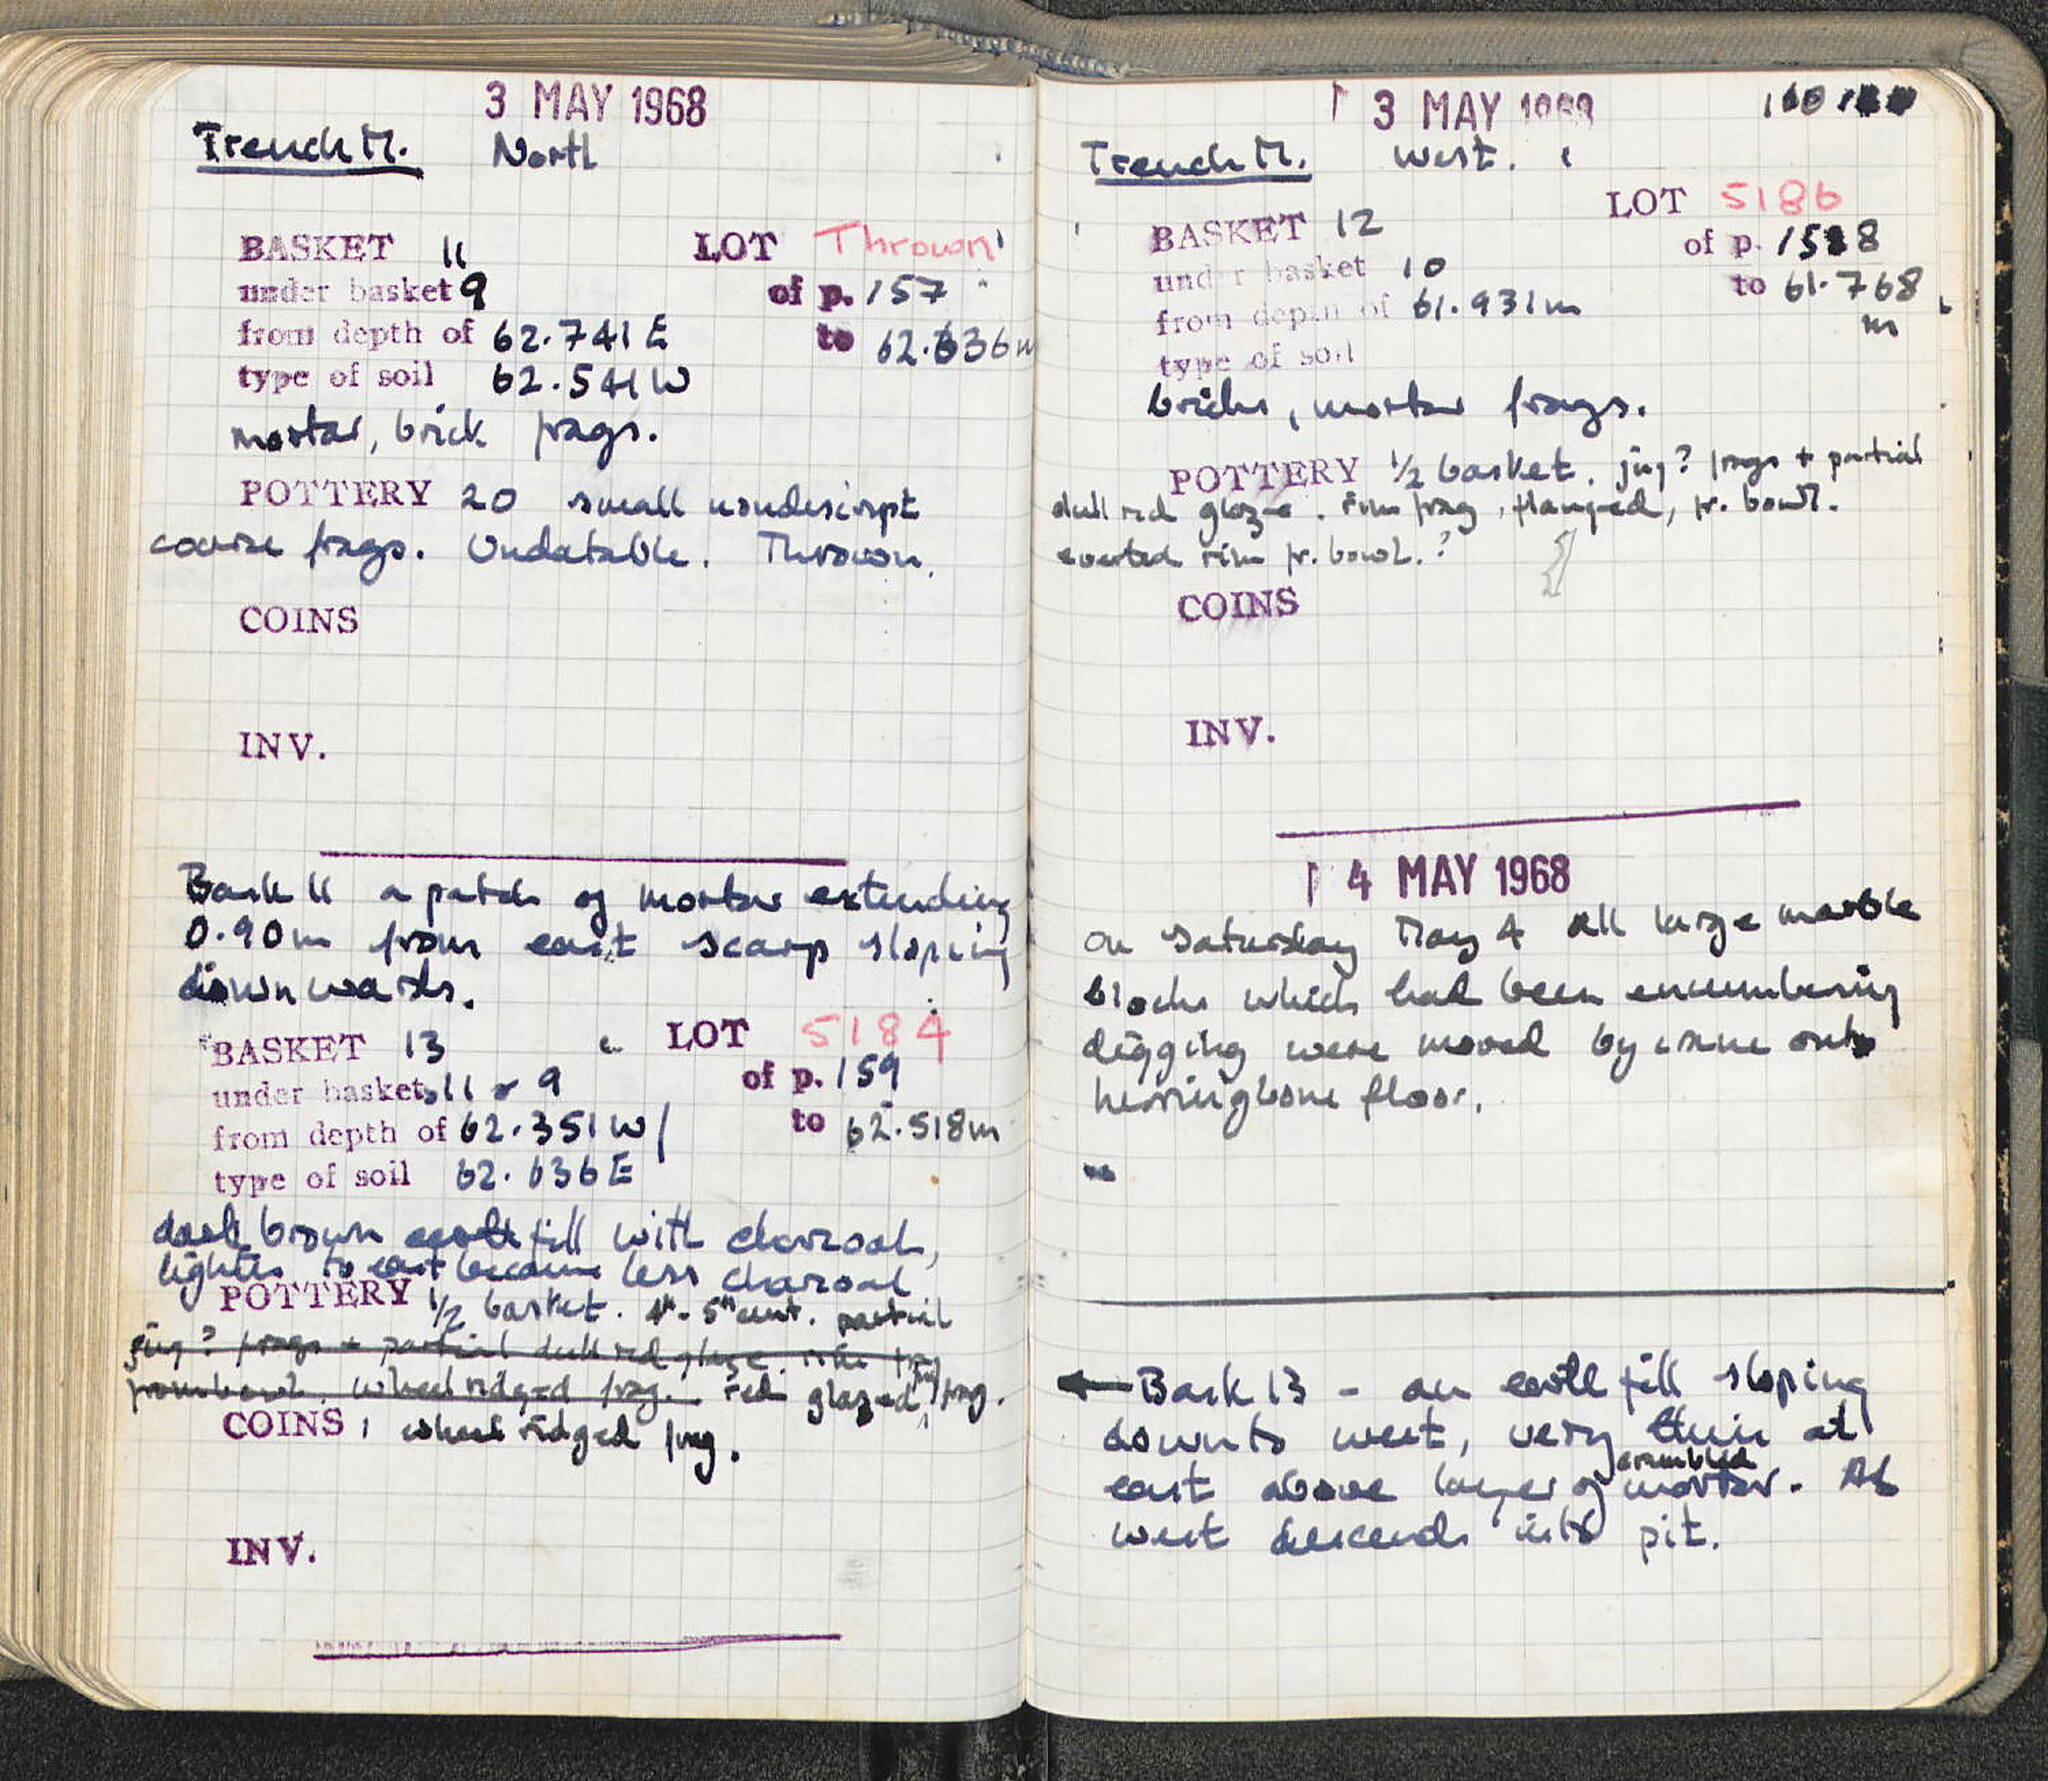 3 MAY 1968
Trench M. North
BASKET 11 LOT Thrown
under basket 9 of p. 157
from depth of 62.741 E to 62.636m
type of soil 62.541 W
mortar, brick frags.
POTTERY 20 small nondescript
coarse frags. Undatable. Thrown.
COINS
INV.
Bask 11 a patch of mortar extending
0.90m from east scarp sloping
downwards.
BASKET 13 LOT 5184
under basket 11 & 9 of p. 159
from depth of 62.351 W / to 62.518m
type of soil 62.636 E
dark brown earth fill with charcoal,
lighter to east because less charcoal
POTTERY 1/2 basket. 4th-5th cent. partial
jug? frags + partial dull red glaze. rim frag
from bowl, wheel ridged frag. red glazed frag.
COINS 1 wheel ridged frag.
INV.
3 MAY 1968 160
Trench M. West.
LOT 5186
BASKET 12 of p. 158
under basket 10 to 61.768
from depth of 61.931m m
type of soil
bricks, mortar frags.
POTTERY 1/2 basket. jug? frags + partial
dull red glaze. rim frag, flanged, fr. bowl.
everted rim fr. bowl.?
COINS
INV.
4 MAY 1968
On Saturday May 4 all large marble
blocks which had been encumbering
digging were moved by crane onto
herringbone floor.
← Bask 13 - an earth fill sloping
down to west, very thin at
east above layer of crumbled mortar. At
west descends into pit.